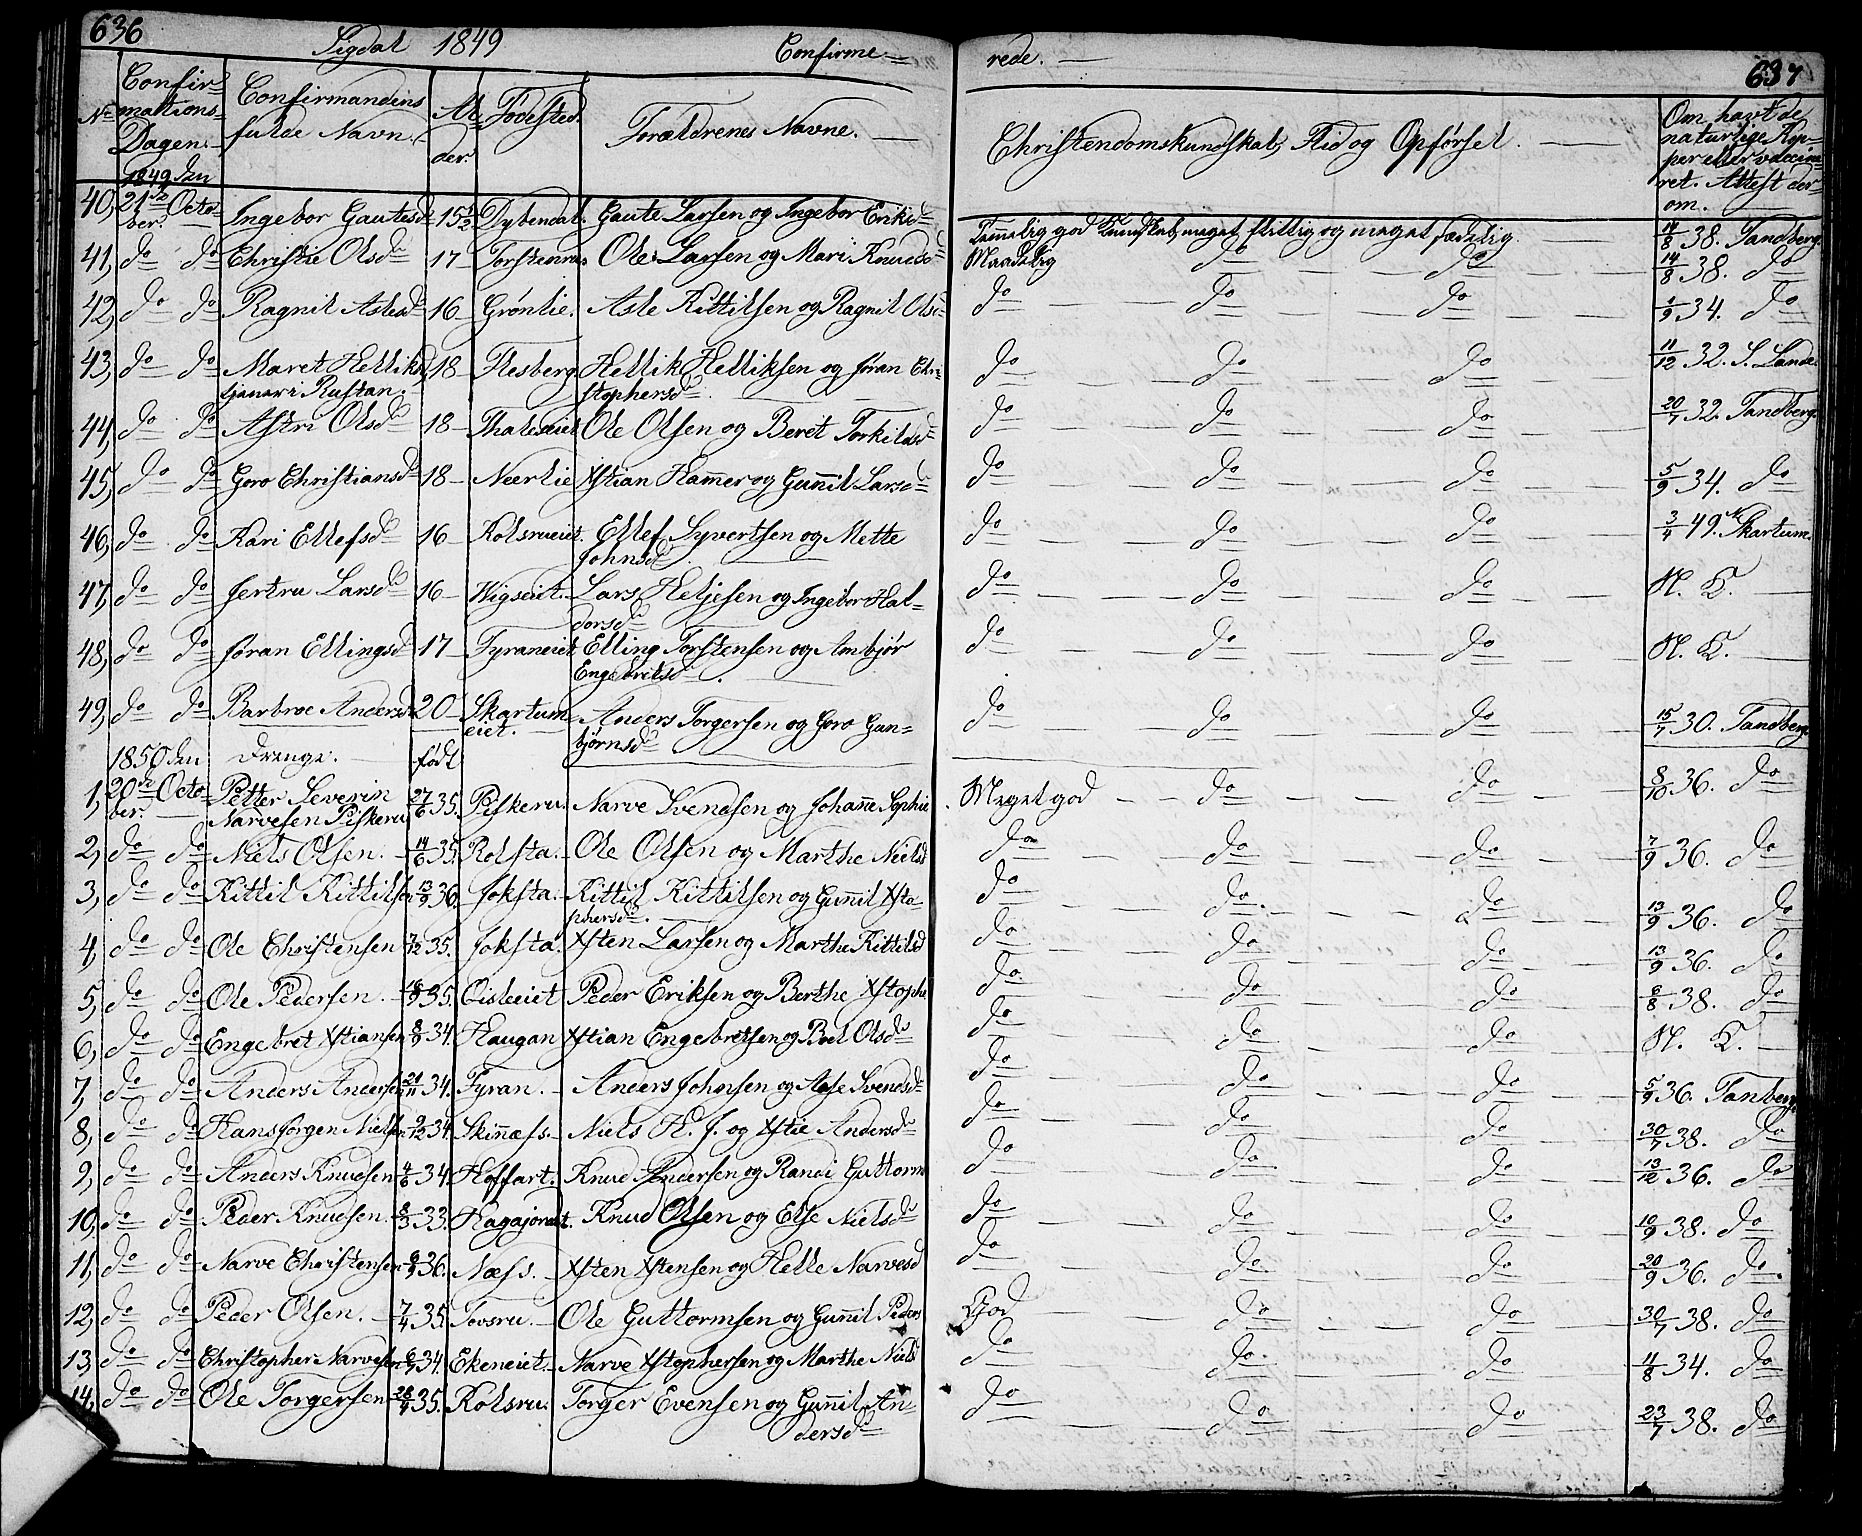 636
Sigdal 1849 Confirme-
rede. 637
No Confirmations-Dagen. Confirmandens fulde Navn. Alder. Fødested. Forældrenes Navne. Christendomskundskab, Flid og Opførsel. Om havt de naturlige Kopper eller vaccineret. Attest derom.
1849 den
40, 21de October. Ingebor Gautesd 15 1/2 Dybendal. Gaute Larsen og Ingebor Eriksd Temmelig god Kundskab, meget flittig og meget sædelig 14/8 38. Tandberg.
41, do do Christie Olsd 17 Torstenrus Ole Larsen og Mari Knudsd Maadelig do do 14/8 38. do
42, do do Ragnil Aslesd 16 Grønlie. Asle Kittilsen og Ragnil Olsd do do do 1/9 34. do
43, do do Maret Helliksd, 18 Flesberg Hellik Helliksen og Jøran Chri- do do do 11/12 32. S. Lande.
tjener i Rustan. stophersd.
44, do do Astri Olsd 18 Thaleseiet Ole Olsen og Beret Torkildsd do do do 20/7 32. Tandberg.
45, do do Goro Christiansd 18 Neerlie Xstian Hamer og Gunnil Larsd do do do 5/9 34. do
46, do do Kari Ellefsd 16 Kolsrueiet. Ellef Syvertsen og Mette do do do 3/4 49. Skartum.
Johnsd.
47, do do Jertru Larsd 16 Wigseiet. Lars Heljesen og Ingebor Hal- do do do N. K.
dorsd
48, do do Jøran Ellingsd 17 Fyraneiet Elling Torstensen og Ambjør do do do N. K.
Engebritsd.
49, do do Barbroe Andersd 20 Skartum Anders Torgersen og Goro Gun- do do do 15/7 30. Tandberg
eiet. bjørnsd
1850 den Drenge. født
1, 20de October. Petter Severin 27/6 35. Piskeru. Narve Svendsen og Johanne Sophie. Meget god do do 8/10 36. do
Narvesen Piskeru
2, do do Niels Olsen. 14/6 35. Rolsta. Ole Olsen og Marthe Nielsd do do do 7/9 36. do
3, do do Kittil Kittilsen 13/9 36. Joksta. Kittil Kittilsen og Gunnil Xsto- do do do 13/9 36. do
phersd.
4, do do Ole Christensen 7/12 35. Joksta. Xsten Larsen og Marthe Kittilsd do do do 13/9 36. do
5, do do Ole Pedersen. 35. Qisleeiet Peder Eriksen og Berthe Xstophe do do do 8/8 38. do
6, do do Engebret Xstiansen 8/9 34. Haugan Xstian Engebretsen og Boel Olsd do do do N. K.
7, do do Anders Andersen 21/11 34. Fyran. Anders Johnsen og Aase Svendsd do do do 5/9 36. Tanberg.
8, do do Hans Jørgen Nielsen 9/12 34. Skinnæss. Niels H. J. og Xstie Andersd do do do 30/7 38. do
9, do do Anders Knudsen 4/6 34. Hoffart. Knud Andersen og Randi Guttorm do do do 13/12 36. do
10, do do Peder Knudsen. 33. Hagajordet. Knud Olsen og Else Nielsd do do do 19/9 38. do
11, do do Narve Christensen 36. Næss. Xsten Xstensen og Helle Narvesd do do do 20/9 36. do.
12, do do Peder Olsen. 7/4 35. Tovsru. Ole Guttormsen og Gunnil Peders God do do 30/7 38. do
13, do do Christopher Narvesen 34. Ekeneiet. Narve Xstophersen og Marthe Niels do do do 4/8 34. do
14, do do Ole Torgersen 35. Kolsru. Torger Evensen og Gunnil An- do do do 23/7 38. do
dersd